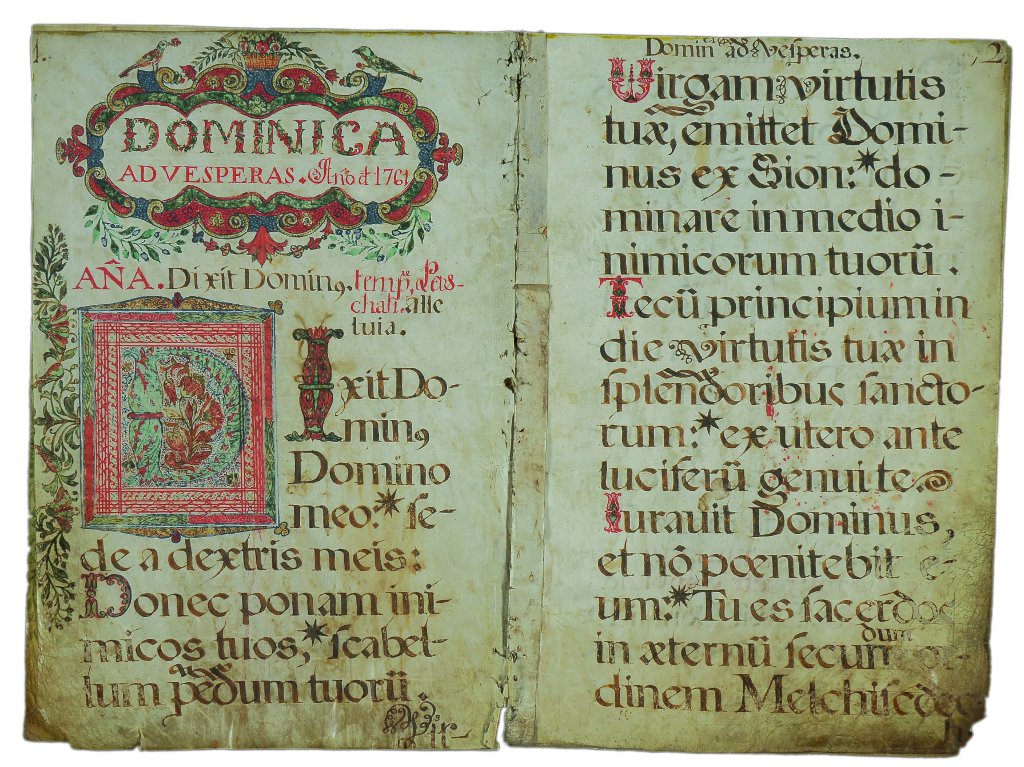 1.
DOMINICA
AD VESPERAS. Año d 1761
AÑA. Dixit Domin9. temp. Pas-
chali. alle
luia.
DIxit Do-
min9
Domino
meo: * se-
de a dextris meis:
Donec ponam ini-
micos tuos, * scabel-
lum pedum tuorū.
Vir-
2
Domin ad Vesperas.
Uirgam virtutis
tuæ, emittet Domi-
nus ex Sion: * do-
minare in medio i-
nimicorum tuorū.
Tecū principium in
die virtutis tuæ in
splendoribus sancto-
rum: * ex utero ante
luciferū genui te.
Iurauit Dominus,
et nō pœnitebit e-
um: * Tu es sacerdos
in æternū secundum or-
dinem Melchisedec